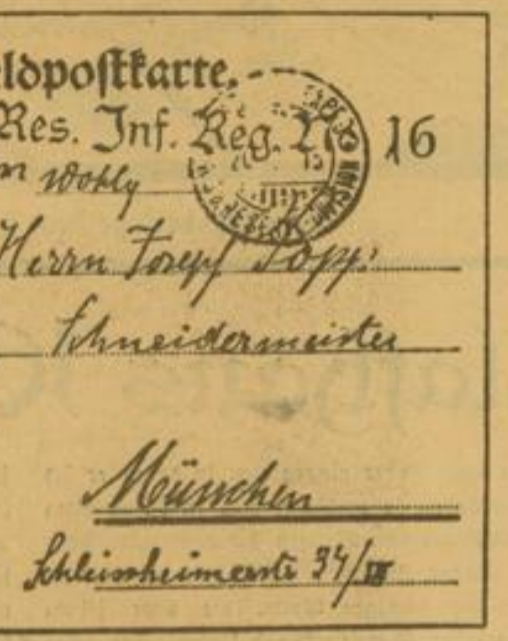 eldpostkarte.
Res. Inf. Reg. 16
Herrn Josef Popp
Schneidermeister
München
Schleissheimerstr 34/III